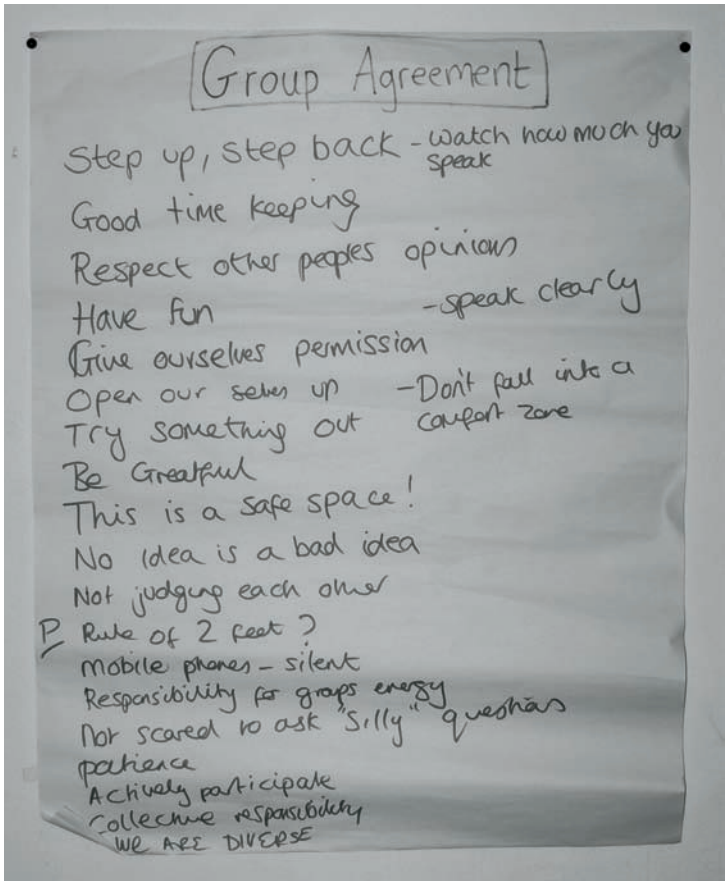 Group Agreement
Step up, step back - watch how much you
speak
Good time keeping
Respect other peoples opinions
Have fun - speak clearly
Give ourselves permission
Open our selves up - Don't fall into a
comfort zone
Try something out
Be Greatful
This is a safe space!
No idea is a bad idea
Not judging each other
P Rule of 2 feet?
mobile phones - silent
Responsibility for groups energy
Not scared to ask "silly" questions
patience
Actively participate
Collective responsibility
WE ARE DIVERSE